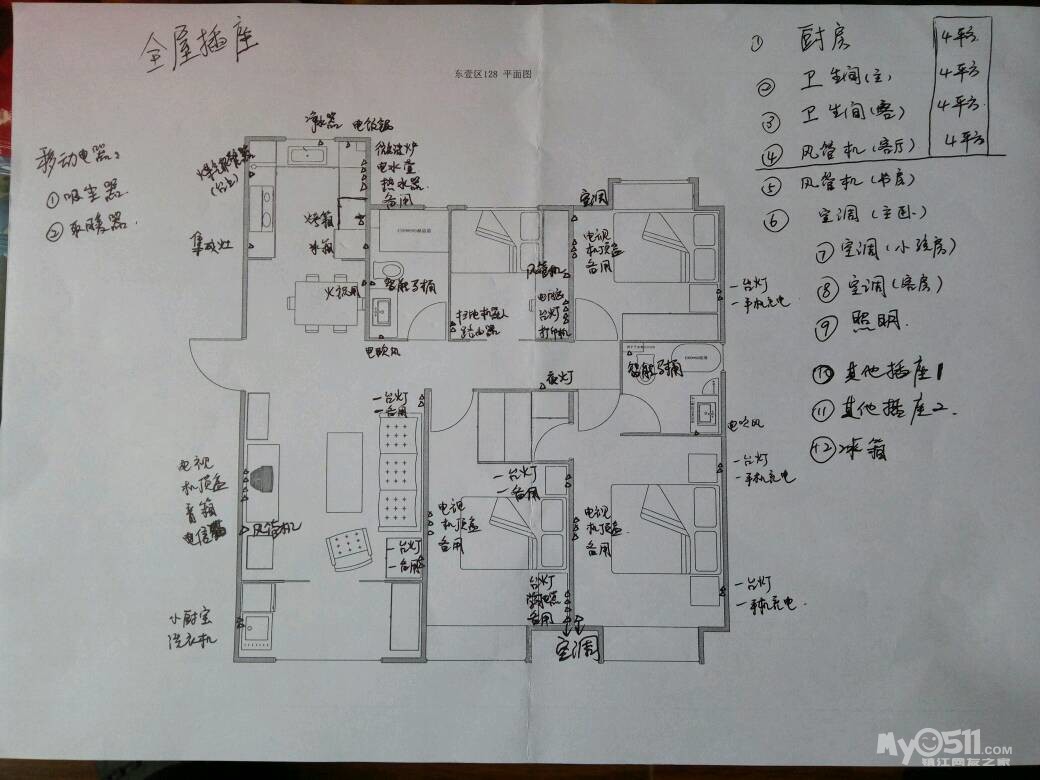 全屋插座
东壹区128 平面图
① 厨房 4平方
② 卫生间(主) 4平方
③ 卫生间(客) 4平方
④ 风管机(客厅) 4平方
⑤ 风管机(书房)
⑥ 空调(主卧)
⑦ 空调(小孩房)
⑧ 空调(客房)
⑨ 照明.
⑩ 其他插座1
⑪ 其他插座2.
⑫ 冰箱
移动电器:
①吸尘器
②取暖器.
净水器 电饭锅
微波炉
电水壶
热水器
备用
(台上)
集成灶
烤箱
冰箱
火锅用
智能马桶
电吹风
扫地机器人
路由器
风管机
电脑
台灯
打印机
空调
电视
机顶盒
备用
一台灯
一手机充电
智能马桶
夜灯
电吹风
一台灯
一备用
电视
机顶盒
音箱
电信
风管机
一台灯
一备用
小厨宝
洗衣机
一台灯
一备用
电视
机顶盒
备用
台灯
备用
空调
电视
机顶盒
备用
一台灯
一手机充电
一台灯
一手机充电
My0511.COM
镇江网友之家